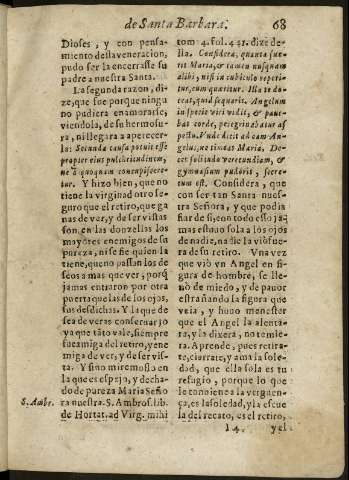 de Santa Barbara. 68
Dioses, y con pensa-
miento de sta veneracion,
pudo ser la encerrasse su
padre a nuestra Santa.
La segunda razon, di
ze, que fue porque ningu
no pudiera enamorarse,
viendola, de su hermosu
ra, ni llegara a apetecer-
la: Secunda causa potuit esse
propter eius pulchritudinem,
ne à quoquam concupiscere-
tur. Y hizo bien, que no
tiene la virginidad otro se
guro que el retiro, que ga
nas de ver, y de ser vistas
son en las donzellas los
mayores enemigos de su
pureza, ni se fie quien la
tiene, que no passan los de
seos a mas que ver, porq̃
jamas entraron por otra
puerta que las de los ojos,
sus desdichas. Y la que de
sea de veras conservar jo
ya que tãto vale, siempre
fue amiga del retiro, y ene
miga de ver, y de ser vis-
ta. Y sino miremoslo en
la que es espejo, y decha-
do de pureza Maria Seño
S. Ambr.
ra nuestra. S. Ambros. lib.
de Hortat. ad Virg. mihi
tom. 4. fol. 431. dize de-
lla. Considera, quanta fue-
rit Maria, & tamen nusquam
alibi, nisi in cubiculo reperi-
tur, cum quæritur. Illa te do-
ceat, quid sequaris. Angelum
in specie viri vidit, & pave-
bat corde, peregrinabatur as
pectu. Unde dicit ad eam An-
gelus, ne timeas Maria. De-
cet solitudo verecundiam, &
gymnasium pudoris, secre-
tum est. Considera, que
con ser tan Santa nues-
tra Señora, y que podia
fiar de si, en todo esso ja-
mas estuvo sola a los ojos
de nadie, nadie la viò fue-
ra de su retiro. Una vez
que viò un Angel en fi-
gura de hombre, se lle-
nò de miedo, y de pavor
estrañando la figura que
veìa, y huvo menester
que el Angel la alenta-
ra, y la dixera, no temie-
ra. Aprende, pues retira-
te, cierrate, y ama la sole-
dad, que ella sola es tu
refugio, porque lo que
le conviene a la verguen-
ça, es la soledad, y la escue
la del recato, es el retiro,
I4. y el